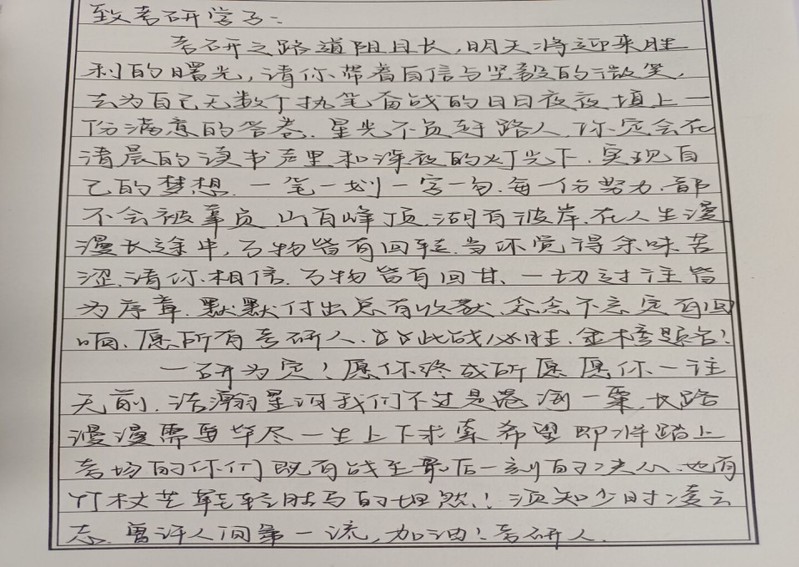 致考研学子:
考研之路道阻且长,明天将迎来胜
利的曙光,请你带着自信与坚毅的微笑,
去为自己无数个执笔奋战的日日夜夜填上一
份满意的答卷.星光不负赶路人,你定会在
清晨的读书声里和深夜的灯光下.实现自
己的梦想.一笔一划一字一句.每一份努力.都
不会被辜负.山有峰顶.湖有彼岸.在人生漫
漫长途中,万物皆有回转.当你觉得余味苦
涩.请你相信.万物皆有回甘.一切过往皆
为序章.默默付出总有收获.念念不忘定有回
响.愿所有考研人.此战必胜.金榜题名!
一研为定!愿你终成所愿愿你一往
无前.浩瀚星河我们不过是沧海一粟.长路
漫漫需要毕尽一生上下求索希望即将踏上
考场的你们既有战至最后一刻的决心.也有
竹杖芒鞋轻胜马的坦然!须知少时凌云
志.曾许人间第一流,加油!考研人.